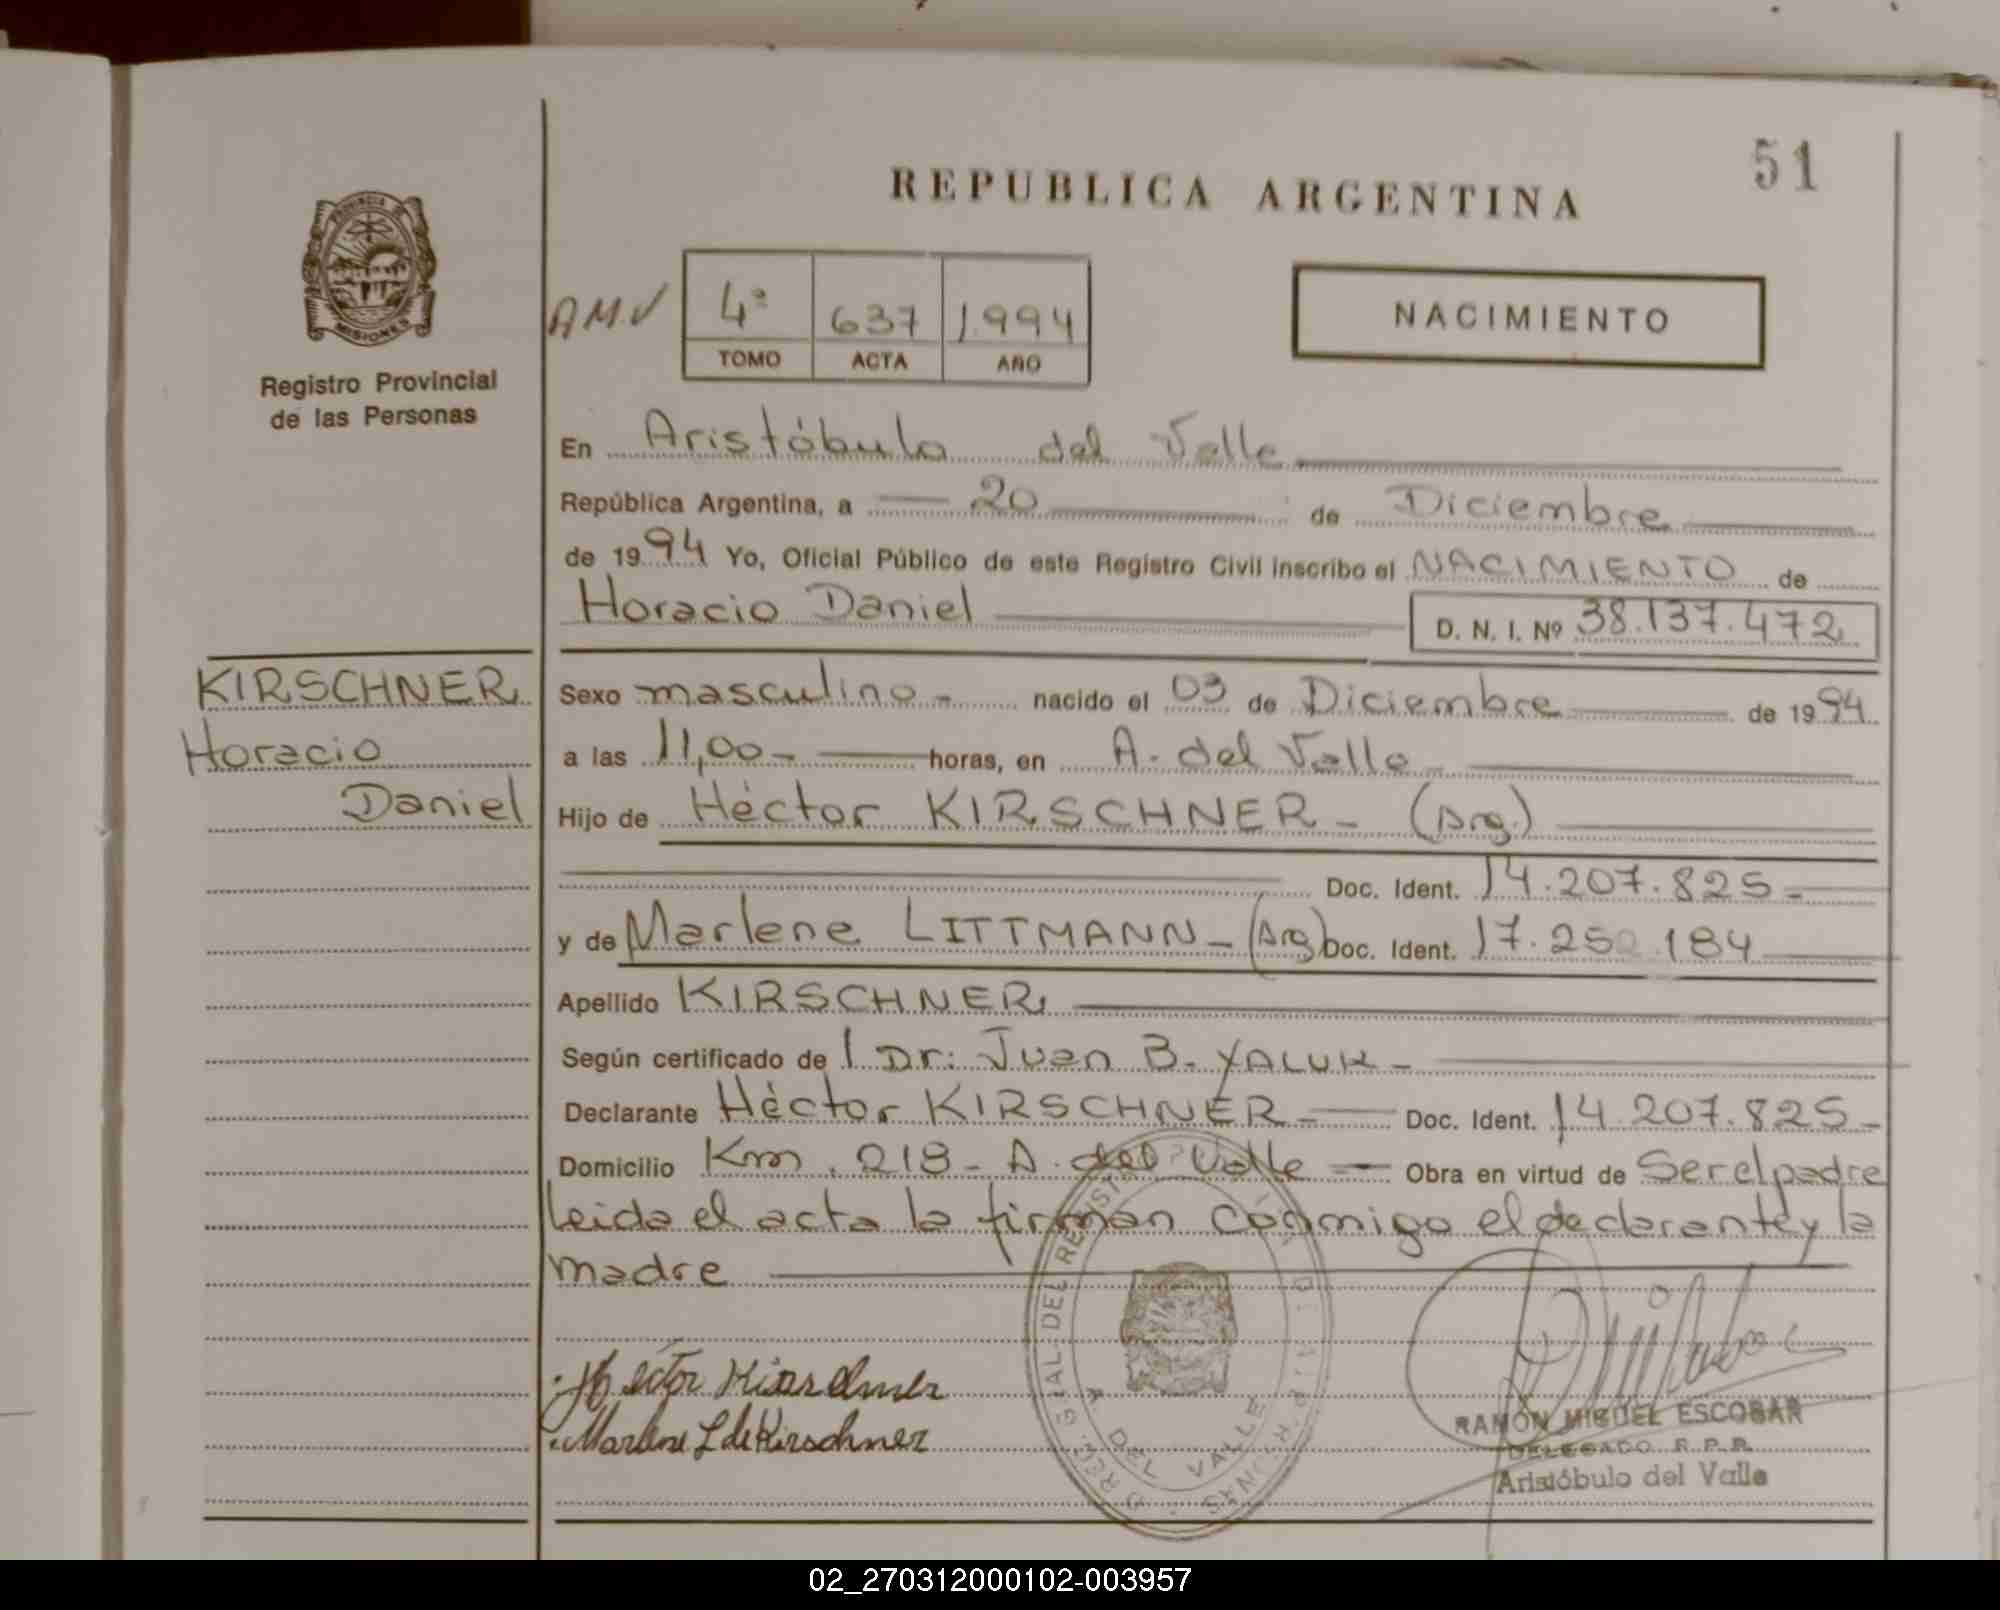 51
REPUBLICA ARGENTINA
PROVINCIA DE
MISIONES
Registro Provincial
de las Personas
A.M.V
4º 637 1.994
TOMO ACTA AÑO
NACIMIENTO
En Aristóbulo del Valle
República Argentina, a 20 de Diciembre
de 1994 Yo, Oficial Público de este Registro Civil inscribo el NACIMIENTO de
Horacio Daniel D. N. I. Nº 38.137.472
KIRSCHNER
Horacio
Daniel
Sexo masculino - nacido el 03 de Diciembre de 1994
a las 11,00 - horas, en A. del Valle
Hijo de Héctor KIRSCHNER - (Arg.)
Doc. Ident. 14.207.825 -
y de Marlene LITTMANN - (Arg) Doc. Ident. 17.252.184
Apellido KIRSCHNER
Según certificado de l Dr: Juan B. YALUK -
Declarante Héctor KIRSCHNER - Doc. Ident. 14.207.825 -
Domicilio Km. 218 - A. del Valle - Obra en virtud de Ser el padre
leida el acta la firman conmigo el declarante y la
madre
Héctor Kirschner
Marlene L de Kirschner
A DEL VALLE
RAMÓN MIGUEL ESCOBAR
DELEGADO R.P.P.
Aristóbulo del Valle
02_270312000102-003957